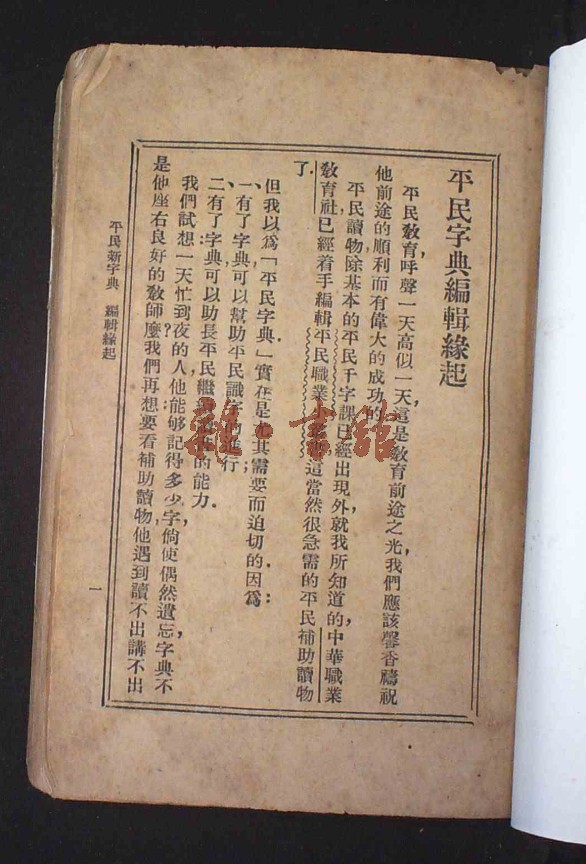 平民字典編輯緣起
平民敎育呼聲,一天高似一天,這是敎育前途之光,我們應該馨香禱祝
他前途的順利而有偉大的成功的.
平民讀物,除基本的平民千字課已經出現外,就我所知道的,中華職業
敎育社已經着手編輯平民職業小叢書,這當然很急需的平民補助讀物
了.
但我以爲「平民字典」實在是尤其需要而迫切的.因爲:
一、有了字典,可以幫助平民識字的進行;
二、有了字典,可以助長平民繼續讀書的能力.
我們試想一天忙到夜的人,他能够記得多少字?倘使偶然遺忘,字典不
是他座右良好的敎師麼?我們再想要看補助讀物,他遇到讀不出講不出
平民新字典 編輯緣起
一